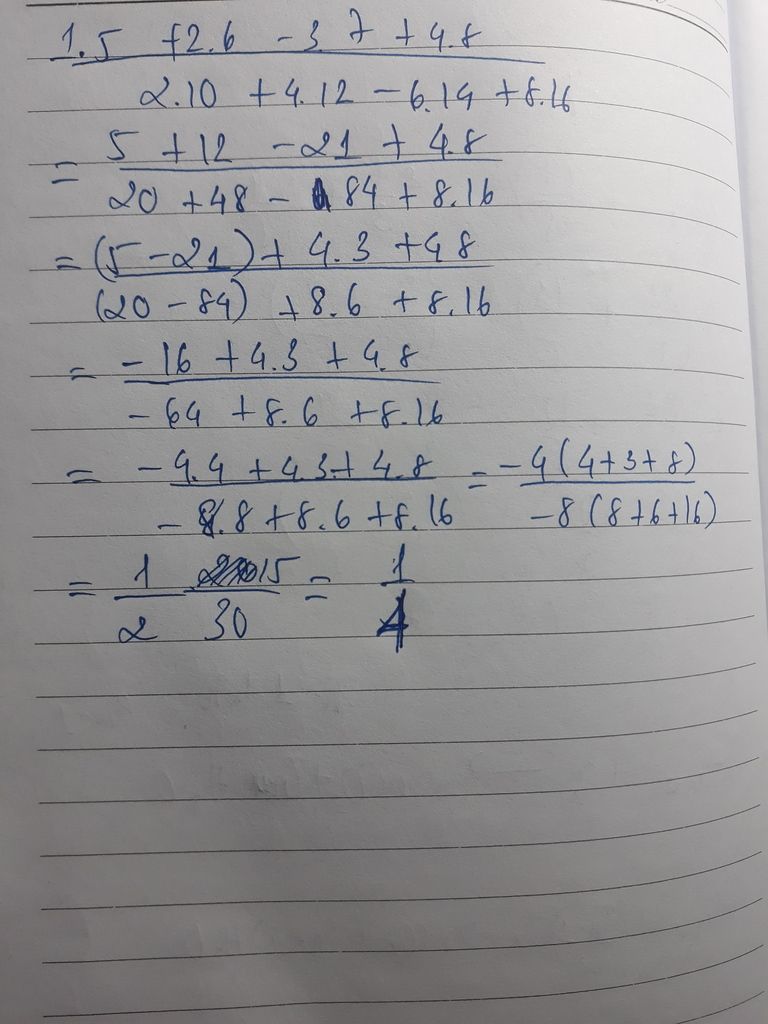 1.5 +2.6 -3 7 +4.8
2.10 +4.12 -6.14 +8.16
= 5 +12 -21 + 4.8
20 +48 - 84 + 8.16
= (5 -21) + 4.3 +48
(20 -84) +8.6 + 8.16
= -16 +4.3 +4.8
-64 +8.6 +8.16
= -4.4 +4.3+ 4.8 = -4(4+3+8)
-8.8 +8.6 +8.16 -8(8+6+16)
= 1 15 = 1
2 30 4